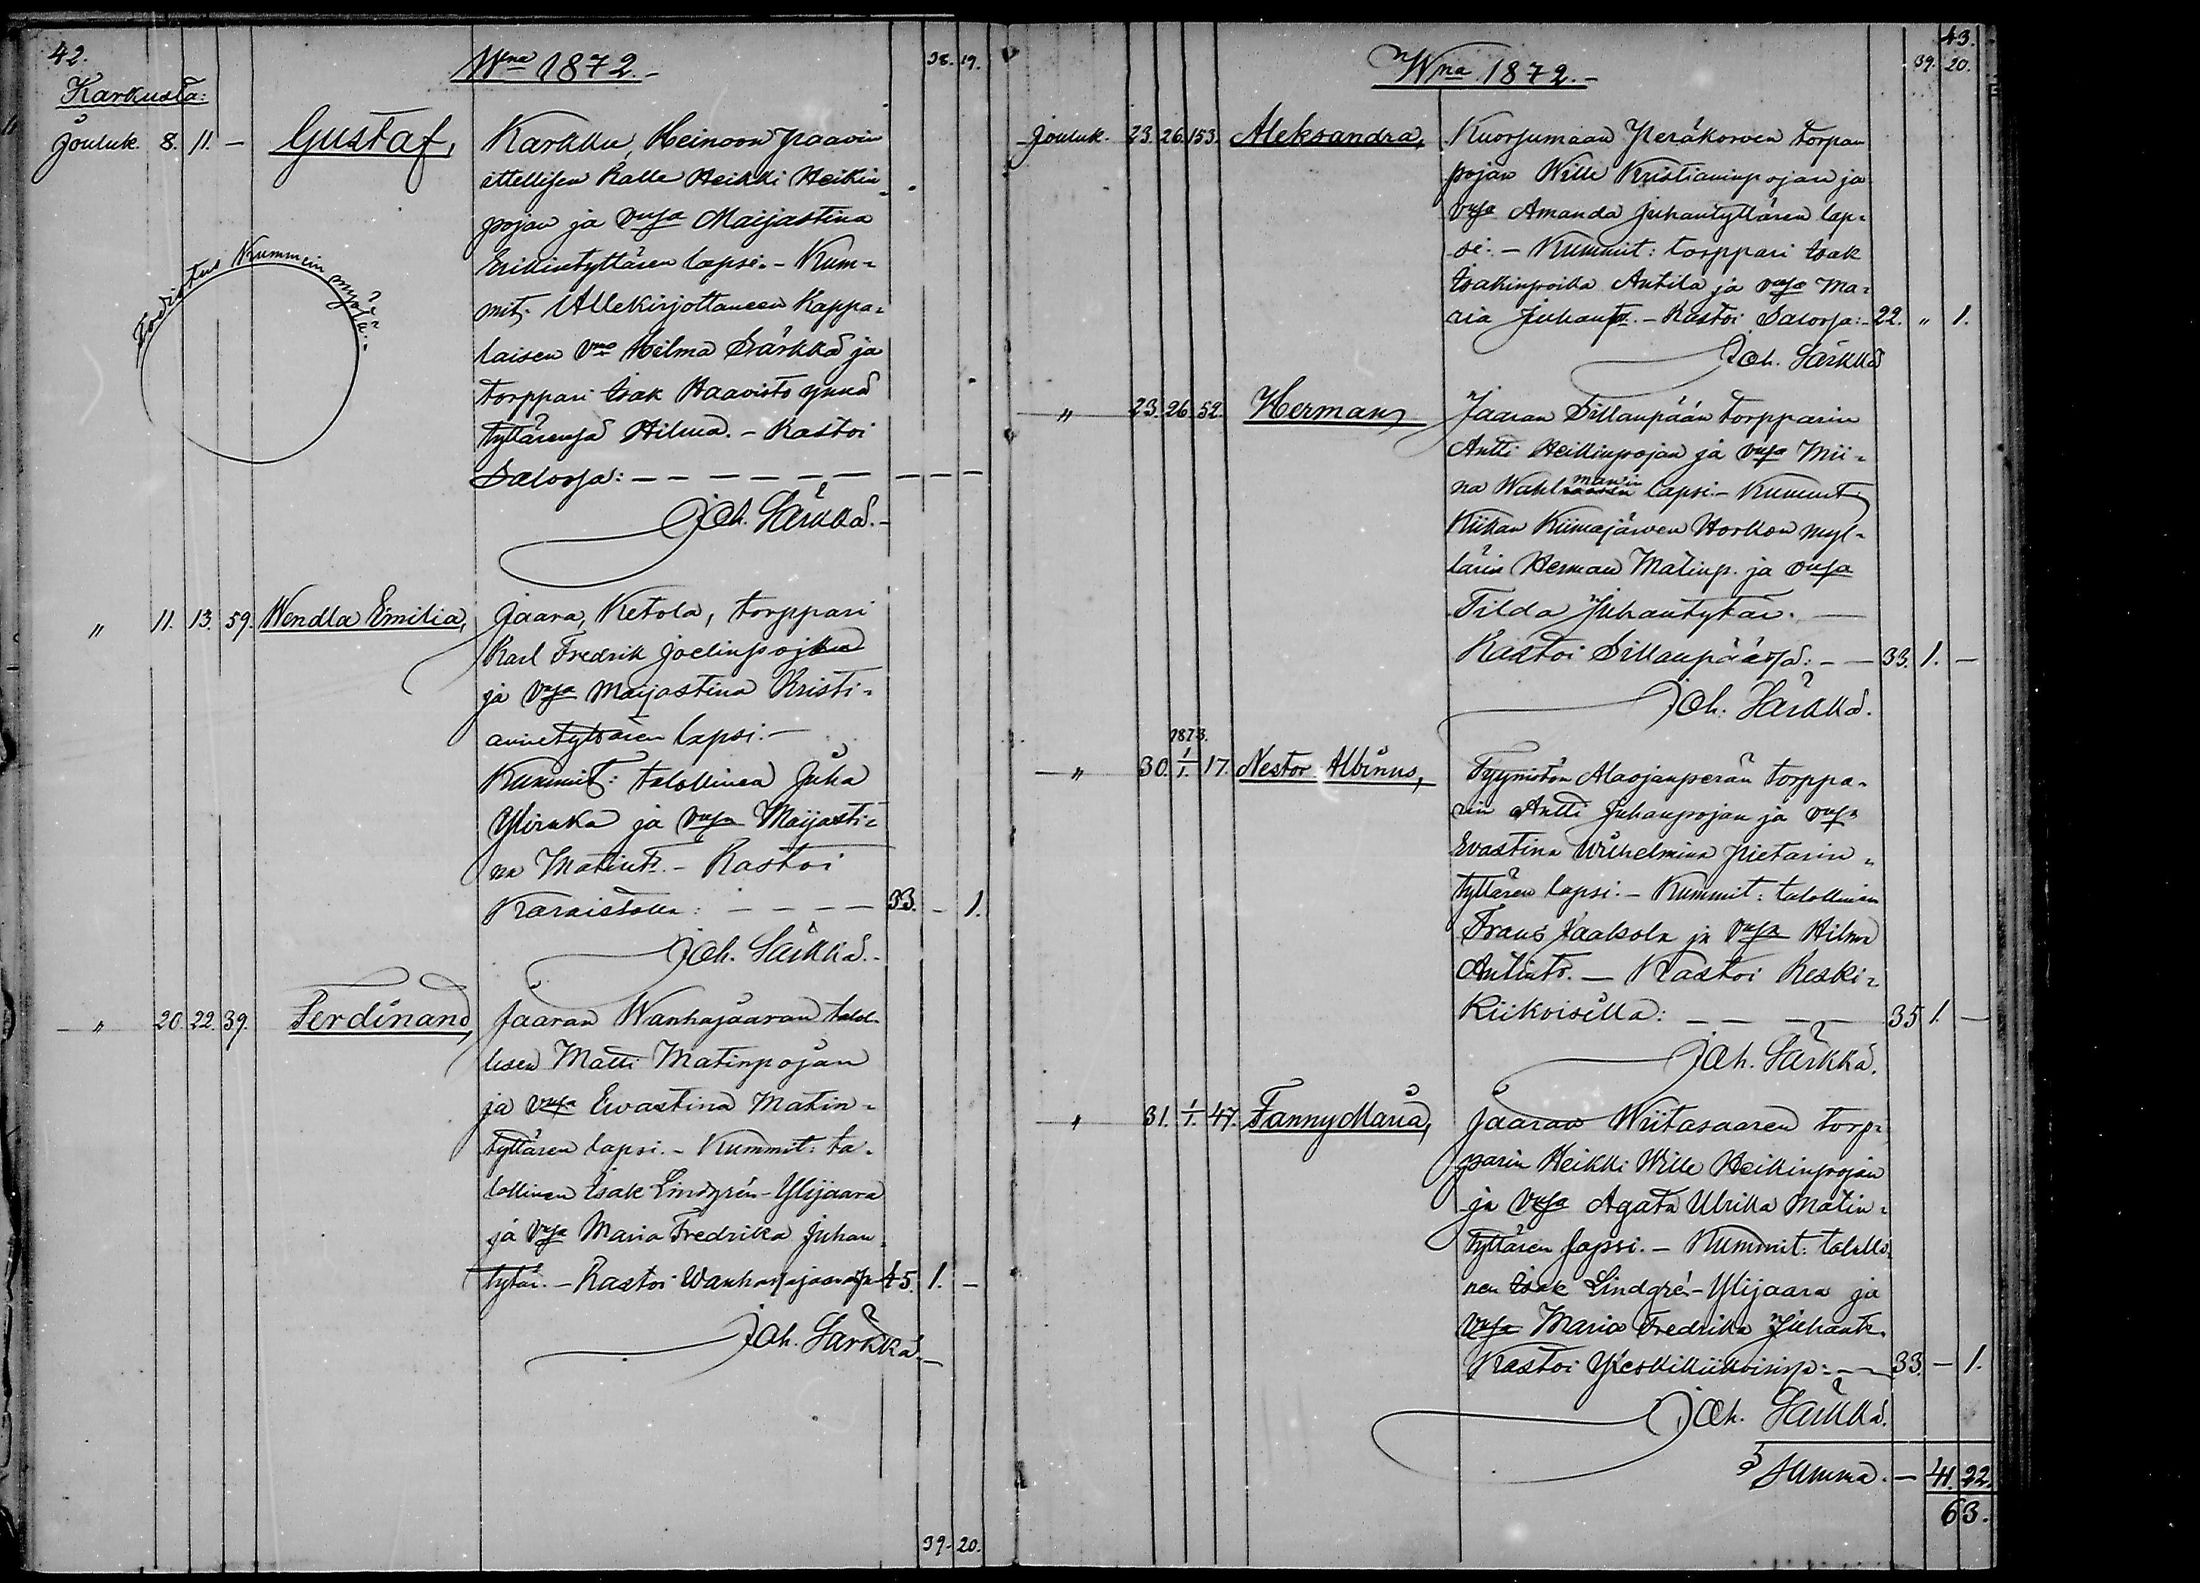 42.
Wna 1872.-
38. 19.
Karkusta:
Jouluk. 8. 11. - Gustaf,
Karkku, Heinoon Paavin
ittellisen Kalle Heikki Heikin-
pojan ja vmsa Maijastina
Erikintyttären lapsi. - Kum-
mit: Allekirjottaneen Kappa-
laisen vmo Hilma Särkkä ja
torppari Isak Haavisto ynnä
tyttärensä Hilma. - Kastoi
Salossa: - - - - - - - - -
Joh. Särkkä.-
Todistus Kummein myötä:
" 11. 13. 59. Wendla Emilia,
Jaara, Ketola, torppari
Karl Fredrik Joelinpojan
ja vmsa Maijastina Kristi-
anintyttären lapsi.-
Kummit: talollinen Juha
Yliruka ja vmsa Maijasti-
na Matint. - Kastoi
Karaistolla: - - - - 33. - 1.
Joh. Särkkä.-
" 20. 22. 39. Ferdinand,
Jaaran Wanhajaaran talol-
lisen Matti Matinpojan
ja vmsa Ewastina Matin-
tyttären lapsi. - Kummit: ta-
lollinen Isak Lindgrén-Ylijaara
ja vmsa Maria Fredrika Juhan-
tytär. - Kastoi Wanhassajaarassa 45. 1. -
Joh. Särkkä.-
39. 20.
43.
Wna 1872.-
39. 20.
Jouluk. 23. 26. 153. Aleksandra,
Kuorsumaan Peräkorven torpan
pojan Wille Kristianinpojan ja
vmsa Amanda Juhantyttären lap-
si. - Kummit: torppari Isak
Isakinpoika Antila ja vmsa Ma-
ria Juhant. - Kastoi Salossa: - 22. " 1.
Joh. Särkkä
" 23. 26. 52. Herman,
Jaaran Sillanpään torpparin
Antti Heikinpojan ja vmsa Mii-
na Wahlmanin lapsi - Kummit
Kiikan Kiimajärwen Horkon myl-
lärin Herman Matinp. ja vmsa
Tilda Juhantytär. -
Kastoi Sillanpäässä: - - 33. 1. -
Joh. Särkkä.
1873.
" 30. 1/1. 17. Nestor Albinus,
Tyynistön Alaojanperän torppa-
rin Antti Juhanpojan ja vmsa
Evastina Wilhelmina Pietarin-
tyttären lapsi. - Kummit: talollinen
Frans Jaakola ja vmsa Hilma
Antint. - Kastoi Keski-
Kiikoisilla: - - - - 35 1. -
Joh. Särkkä.
" 31. 1/1. 47. Fanny Maria,
Jaaran Wiitasaaren torp-
parin Heikki Wille Heikinpojan
ja vmsa Agata Ulrika Matin-
tyttären lapsi. - Kummit: talolli-
nen Isak Lindgré-Ylijaara ja
vmsa Maria Fredrika Juhant.
Kastoi Keskikiikoisissa: - - 33. - 1.
Joh. Särkkä.
Summa. - 41. 22.
63.